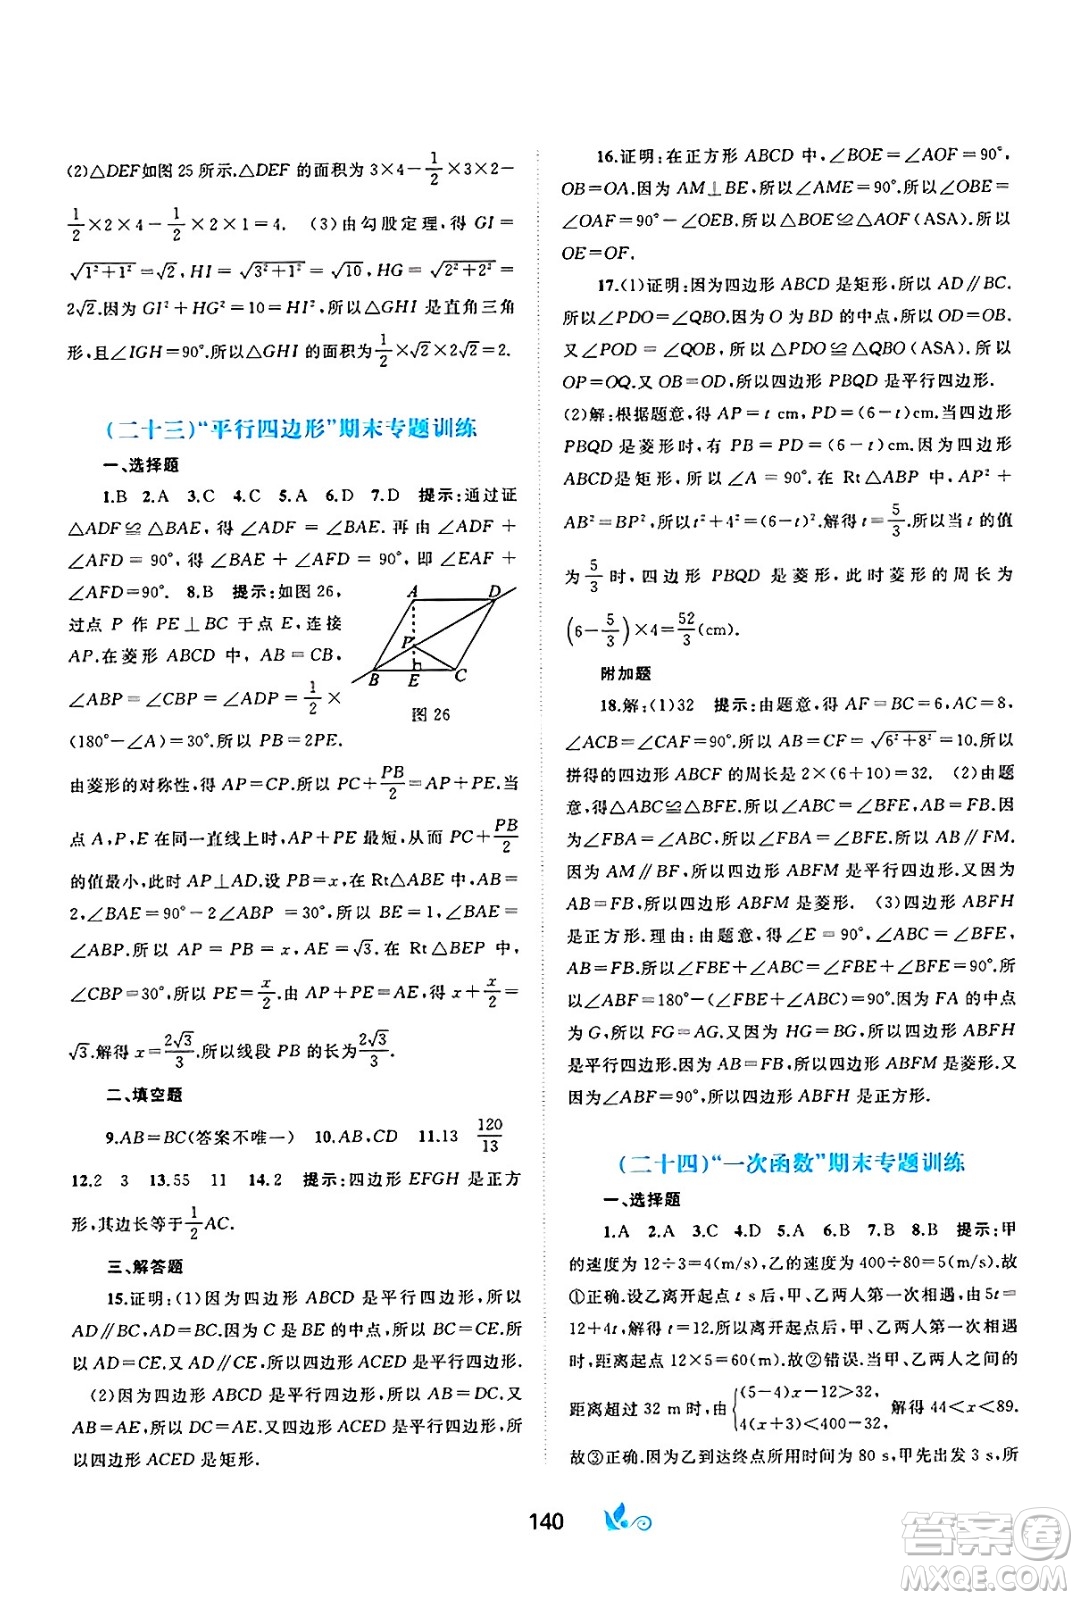 (2)△DEF如图 25 所示.△DEF 的面积为 3×4−1/2×3×2−
1/2×2×4−1/2×2×1=4.　(3)由勾股定理,得 GI=
√(1²+1²)=√2,HI=√(3²+1²)=√10,HG=√(2²+2²)=
2√2.因为 GI²+HG²=10=HI²,所以△GHI 是直角三角
形,且∠IGH=90°.所以△GHI 的面积为1/2×√2×2√2=2.
(二十三)“平行四边形”期末专题训练
一、选择题
1.B　2.A　3.C　4.C　5.A　6.D　7.D　提示:通过证
△ADF≌△BAE,得∠ADF=∠BAE.再由∠ADF+
∠AFD=90°,得∠BAE+∠AFD=90°,即∠EAF+
∠AFD=90°.　8.B　提示:如图 26,
过点 P 作 PE⊥BC 于点 E,连接
AP.在菱形 ABCD 中,AB=CB,
∠ABP=∠CBP=∠ADP=1/2×
(180°−∠A)=30°.所以 PB=2PE.
A
D
P
B
E
C
图 26
由菱形的对称性,得 AP=CP.所以 PC+PB/2=AP+PE.当
点 A,P,E 在同一直线上时,AP+PE 最短,从而 PC+PB/2
的值最小,此时 AP⊥AD.设 PB=x,在 Rt△ABE 中,AB=
2,∠BAE=90°−2∠ABP=30°,所以 BE=1,∠BAE=
∠ABP.所以 AP=PB=x,AE=√3.在 Rt△BEP 中,
∠CBP=30°,所以 PE=x/2.由 AP+PE=AE,得 x+x/2=
√3.解得 x=2√3/3.所以线段 PB 的长为2√3/3.
二、填空题
9.AB=BC(答案不唯一)　10.AB,CD　11.13　120/13
12.2　3　13.55　11　14.2　提示:四边形 EFGH 是正方
形,其边长等于1/2AC.
三、解答题
15.证明:(1)因为四边形 ABCD 是平行四边形,所以
AD∥BC,AD=BC.因为 C 是 BE 的中点,所以 BC=CE.所
以 AD=CE.又 AD∥CE,所以四边形 ACED 是平行四边形.
(2)因为四边形 ABCD 是平行四边形,所以 AB=DC.又
AB=AE,所以 DC=AE.又四边形 ACED 是平行四边形,所
以四边形 ACED 是矩形.
16.证明:在正方形 ABCD 中,∠BOE=∠AOF=90°,
OB=OA.因为 AM⊥BE,所以∠AME=90°.所以∠OBE=
∠OAF=90°−∠OEB.所以△BOE≌△AOF(ASA).所以
OE=OF.
17.(1)证明:因为四边形 ABCD 是矩形,所以 AD∥BC.
所以∠PDO=∠QBO.因为 O 为 BD 的中点,所以 OD=OB.
又∠POD=∠QOB,所以△PDO≌△QBO(ASA).所以
OP=OQ.又 OB=OD,所以四边形 PBQD 是平行四边形.
(2)解:根据题意,得 AP=t cm,PD=(6−t)cm.当四边形
PBQD 是菱形时,有 PB=PD=(6−t)cm.因为四边形
ABCD是矩形,所以∠A=90°.在 Rt△ABP 中,AP²+
AB²=BP²,所以 t²+4²=(6−t)².解得 t=5/3.所以当 t 的值
为5/3时,四边形 PBQD 是菱形,此时菱形的周长为
(6−5/3)×4=52/3(cm).
附加题
18.解:(1)32　提示:由题意,得 AF=BC=6,AC=8,
∠ACB=∠CAF=90°.所以 AB=CF=√(6²+8²)=10.所以
拼得的四边形 ABCF 的周长是 2×(6+10)=32.　(2)由题
意,得△ABC≌△BFE.所以∠ABC=∠BFE,AB=FB.因为
∠FBA=∠ABC,所以∠FBA=∠BFE.所以 AB∥FM.
因为 AM∥BF,所以四边形 ABFM 是平行四边形.因为
AB=FB,所以四边形 ABFM 是菱形.　(3)四边形 ABFH
是正方形.理由:由题意,得∠E=90°,∠ABC=∠BFE,
AB=FB.所以∠FBE+∠BFE=∠FBE+∠ABC=90°.所
以∠ABF=180°−(∠FBE+∠ABC)=90°.因为 FA 的中点
为 G,所以 FG=AG.又因为 HG=BG,所以四边形 ABFH
是平行四边形.因为 AB=FB,所以四边形 ABFM 是菱形.
因为∠ABF=90°,所以四边形 ABFH 是正方形.
(二十四)“一次函数”期末专题训练
一、选择题
1.A　2.A　3.C　4.D　5.A　6.B　7.B　8.B　提示:甲
的速度为 12÷3=4(m/s),乙的速度为 400÷80=5(m/s).故
①正确.设乙离开起点 t s后,甲、乙两人第一次相遇,由 5t=
12+4t,解得 t=12.所以离开起点后,甲、乙两人第一次相遇
时,距离起点 12×5=60(m).故②错误.当甲、乙两人之间的
距离超过 32 m 时,由{(5−4)x−12>32, 4(x+3)<400−32,解得 44<x<89.
故③正确.因为乙到达终点所用时间为 80 s,甲先出发 3 s,所
140
答案圈
MXQE.COM